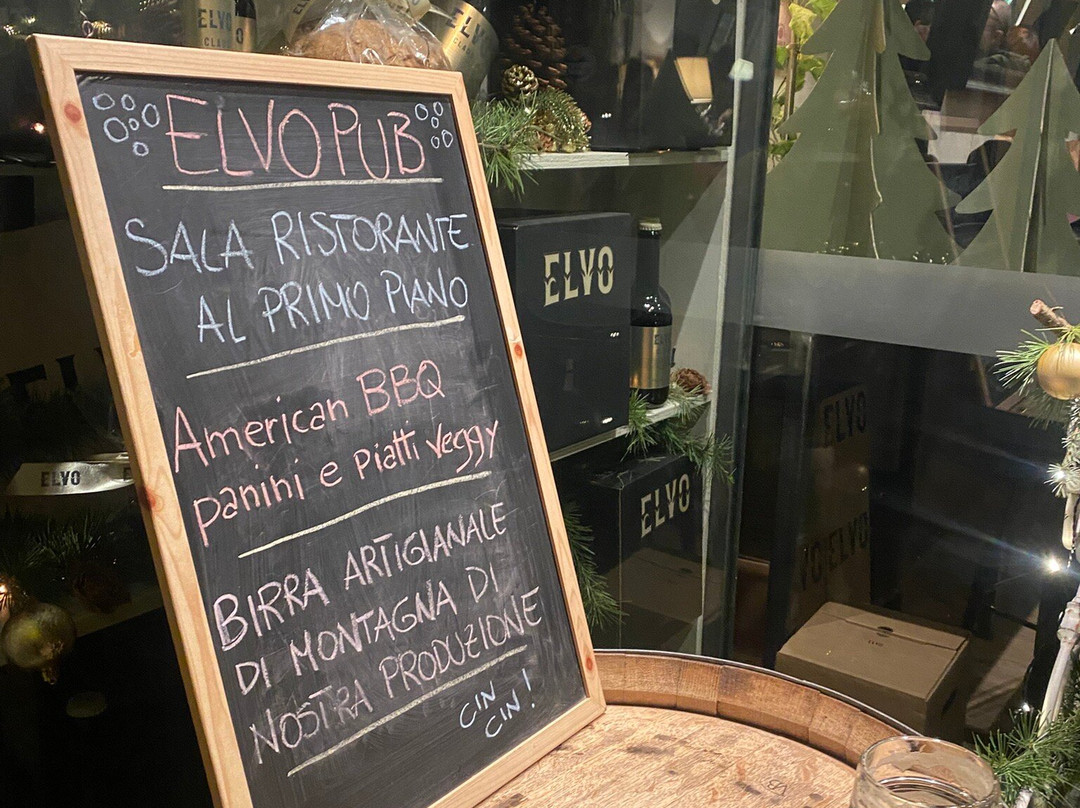 ELVO PUB
SALA RISTORANTE
AL PRIMO PIANO
American BBQ
panini e piatti veggy
BIRRA ARTIGIANALE
DI MONTAGNA DI
NOSTRA PRODUZIONE
CIN
CIN!
ELVO
ELVO
ELVO
ELVO
ELVO
ELVO